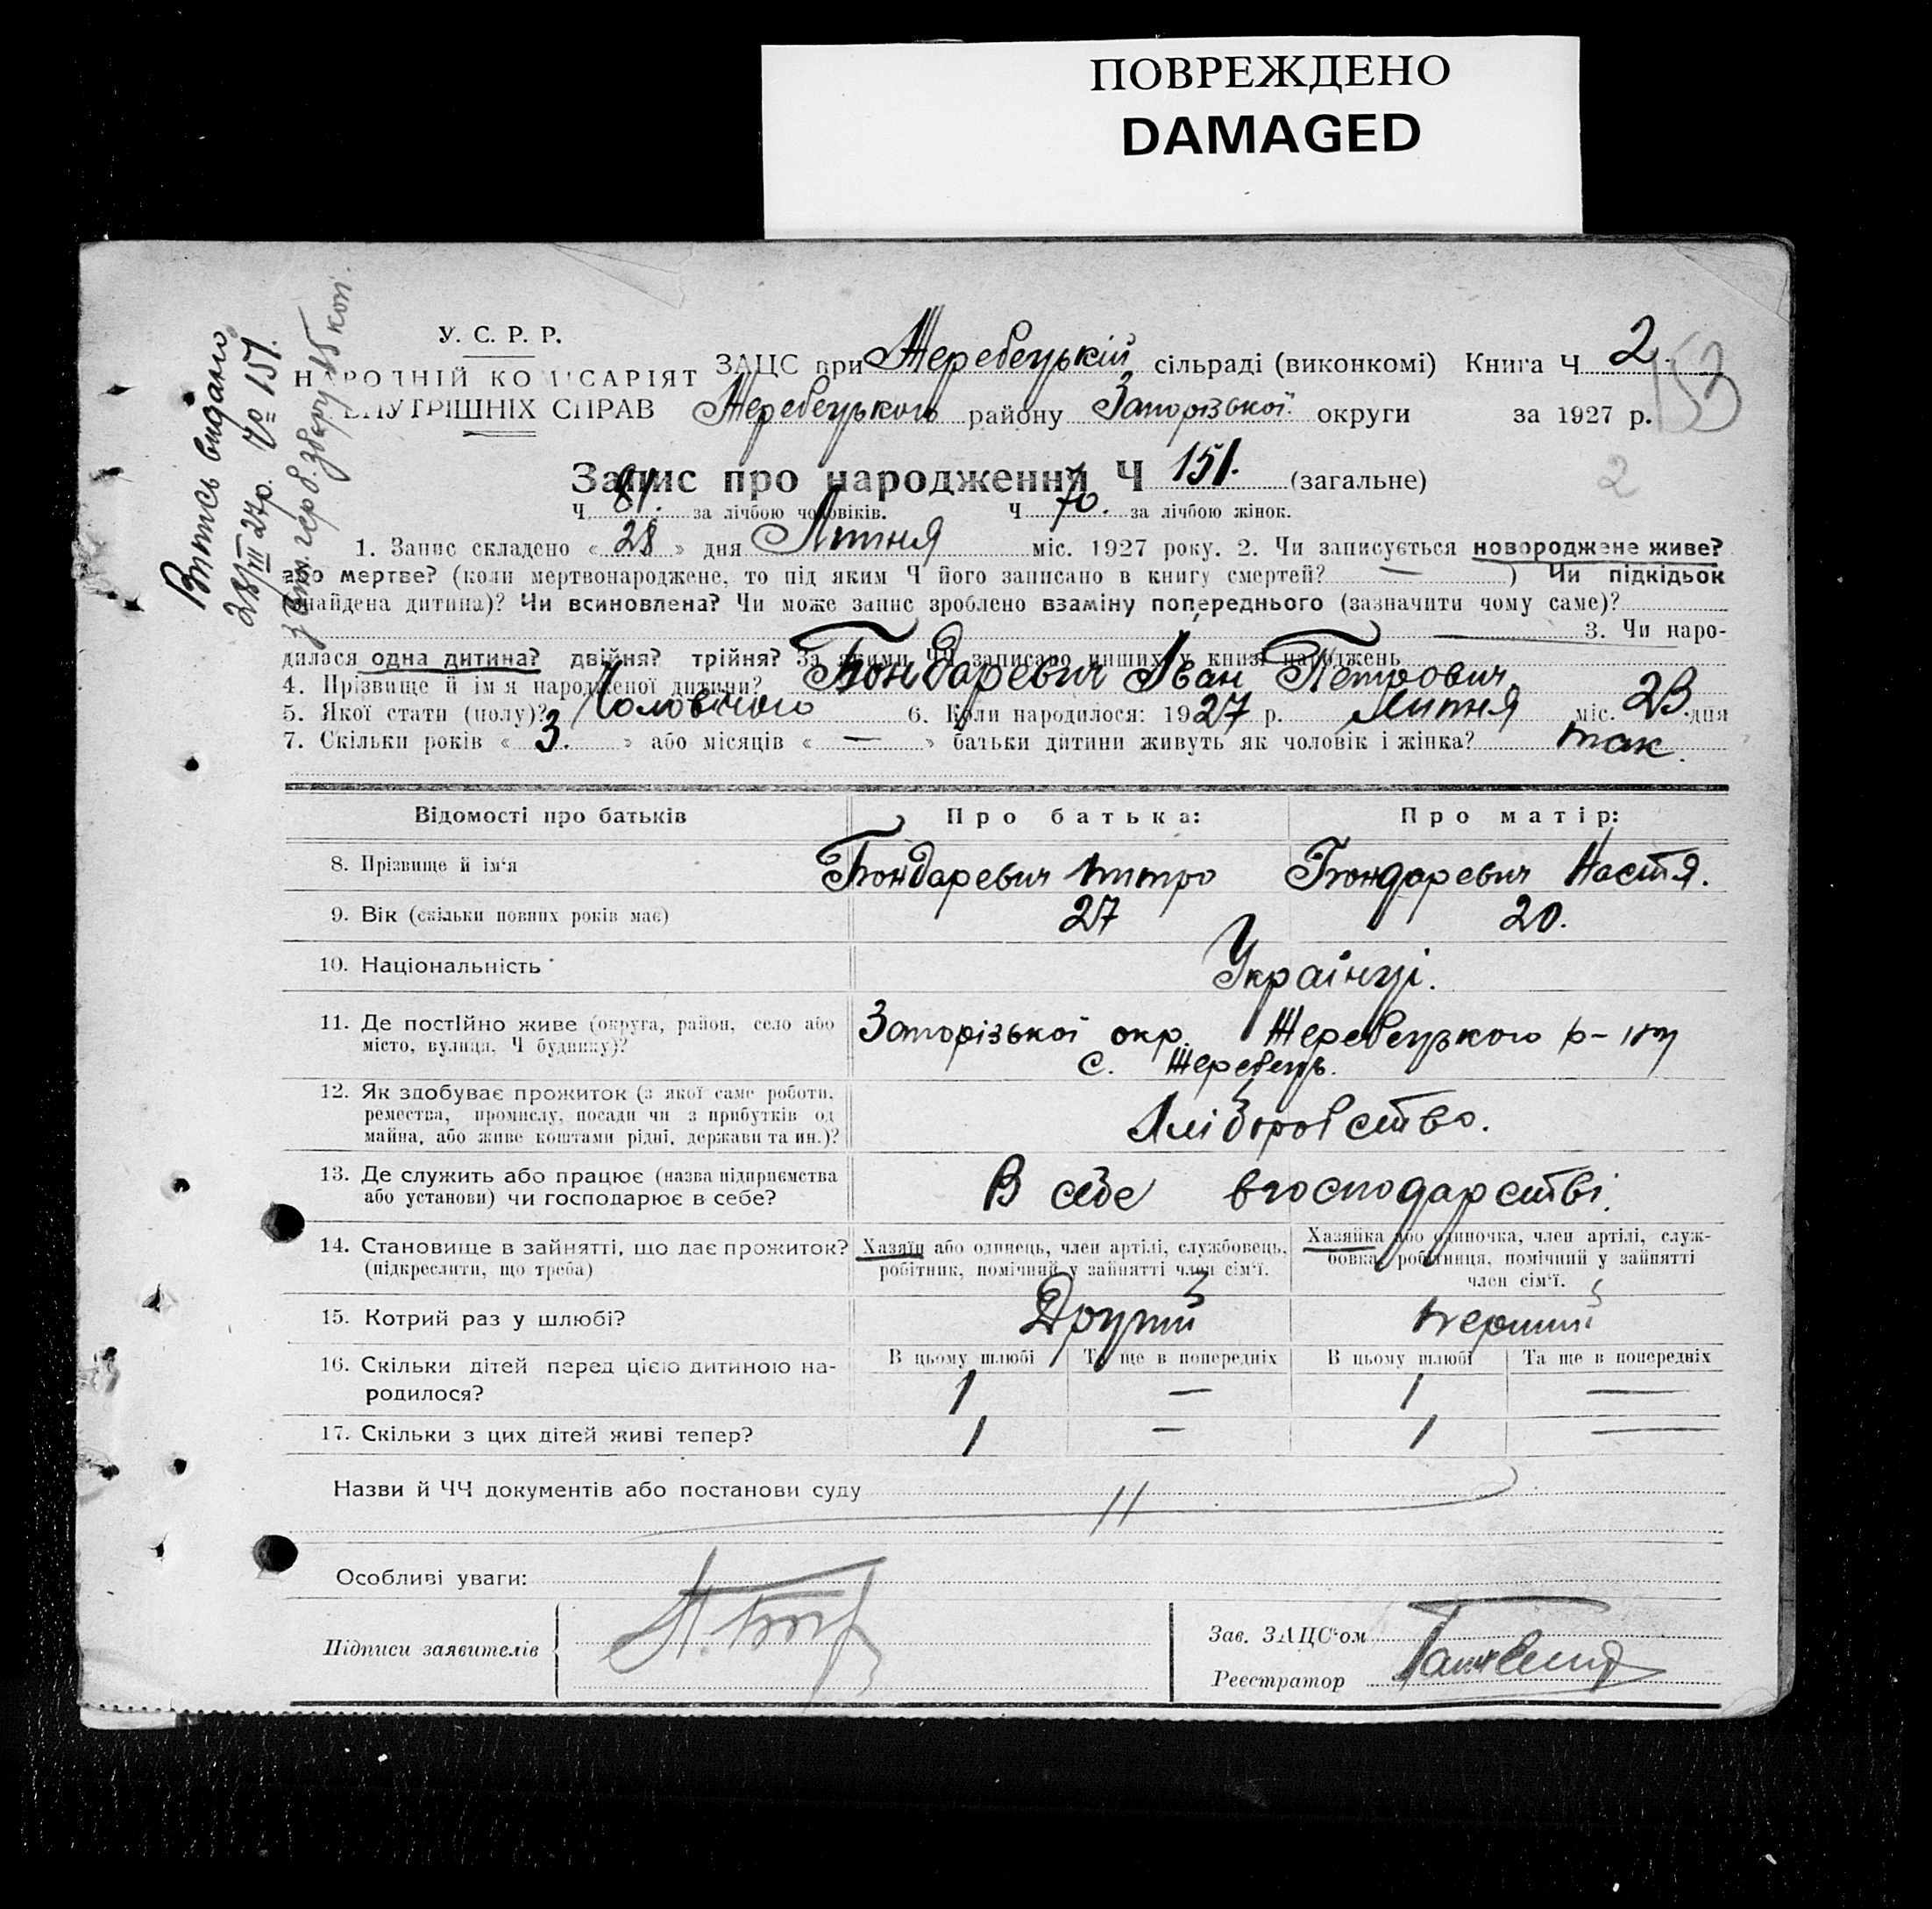 ПОВРЕЖДЕНО
DAMAGED
Витись видано
28/VII 27р. № 151.
з опл. герб. збору 15 коп.
У. С. Р. Р.
НАРОДНІЙ КОМІСАРІЯТ
ВНУТРІШНІХ СПРАВ
ЗАЦС при Жеребецькій сільраді (виконкомі) Книга Ч 2
Жеребецького району Запорізької округи за 1927 р.
153
2
Запис про народження Ч 151. (загальне)
Ч 81. за лічбою чоловіків. Ч 70. за лічбою жінок.
1. Запис складено « 28 » дня Липня міс. 1927 року. 2. Чи записується новороджене живе?
або мертве? (коли мертвонароджене, то під яким Ч його записано в книгу смертей? — ) Чи підкідьок
(знайдена дитина)? Чи всиновлена? Чи може запис зроблено взаміну попереднього (зазначити чому саме)?
3. Чи наро-
дилася одна дитина? двійня? трійня? За якими ЧЧ записано инших у книзі народжень
4. Прізвище й ім'я народженої дитини? Бондаревич Іван Петрович.
5. Якої стати (полу)? Чоловічого 6. Коли народилося: 1927 р. Липня міс. 23 дня
7. Скільки років « 3. » або місяців « — » батьки дитини живуть як чоловік і жінка? так.
Відомості про батьків Про батька: Про матір:
8. Прізвище й ім'я Бондаревич Питро Бондаревич Настя.
9. Вік (скільки повних років має) 27 20.
10. Національність Українці.
11. Де постійно живе (округа, район, село або Запорізької окр. Жеребецького р-ну
місто, вулиця, Ч будинку)? с. Жеребець.
12. Як здобуває прожиток (з якої саме роботи,
ремества, промислу, посади чи з прибутків од
майна, або живе коштами рідні, держави та ин.)? Хліборобство.
13. Де служить або працює (назва підприємства
або установи) чи господарює в себе? В себе в господарстві.
14. Становище в зайнятті, що дає прожиток? Хазяїн або одинець, член артілі, службовець, Хазяйка або одиночка, член артілі, служ-
(підкреслити, що треба) робітник, помічний у зайнятті член сім'ї. бовка, робітниця, помічний у зайнятті
член сім'ї.
15. Котрий раз у шлюбі? Другий первий
16. Скільки дітей перед цією дитиною на- В цьому шлюбі Та ще в попередніх В цьому шлюбі Та ще в попередніх
родилося? 1 — 1 —
17. Скільки з цих дітей живі тепер? 1 — 1 —
Назви й ЧЧ документів або постанови суду
Особливі уваги:
Підписи заявителів
Зав. ЗАЦС'ом
Реєстратор